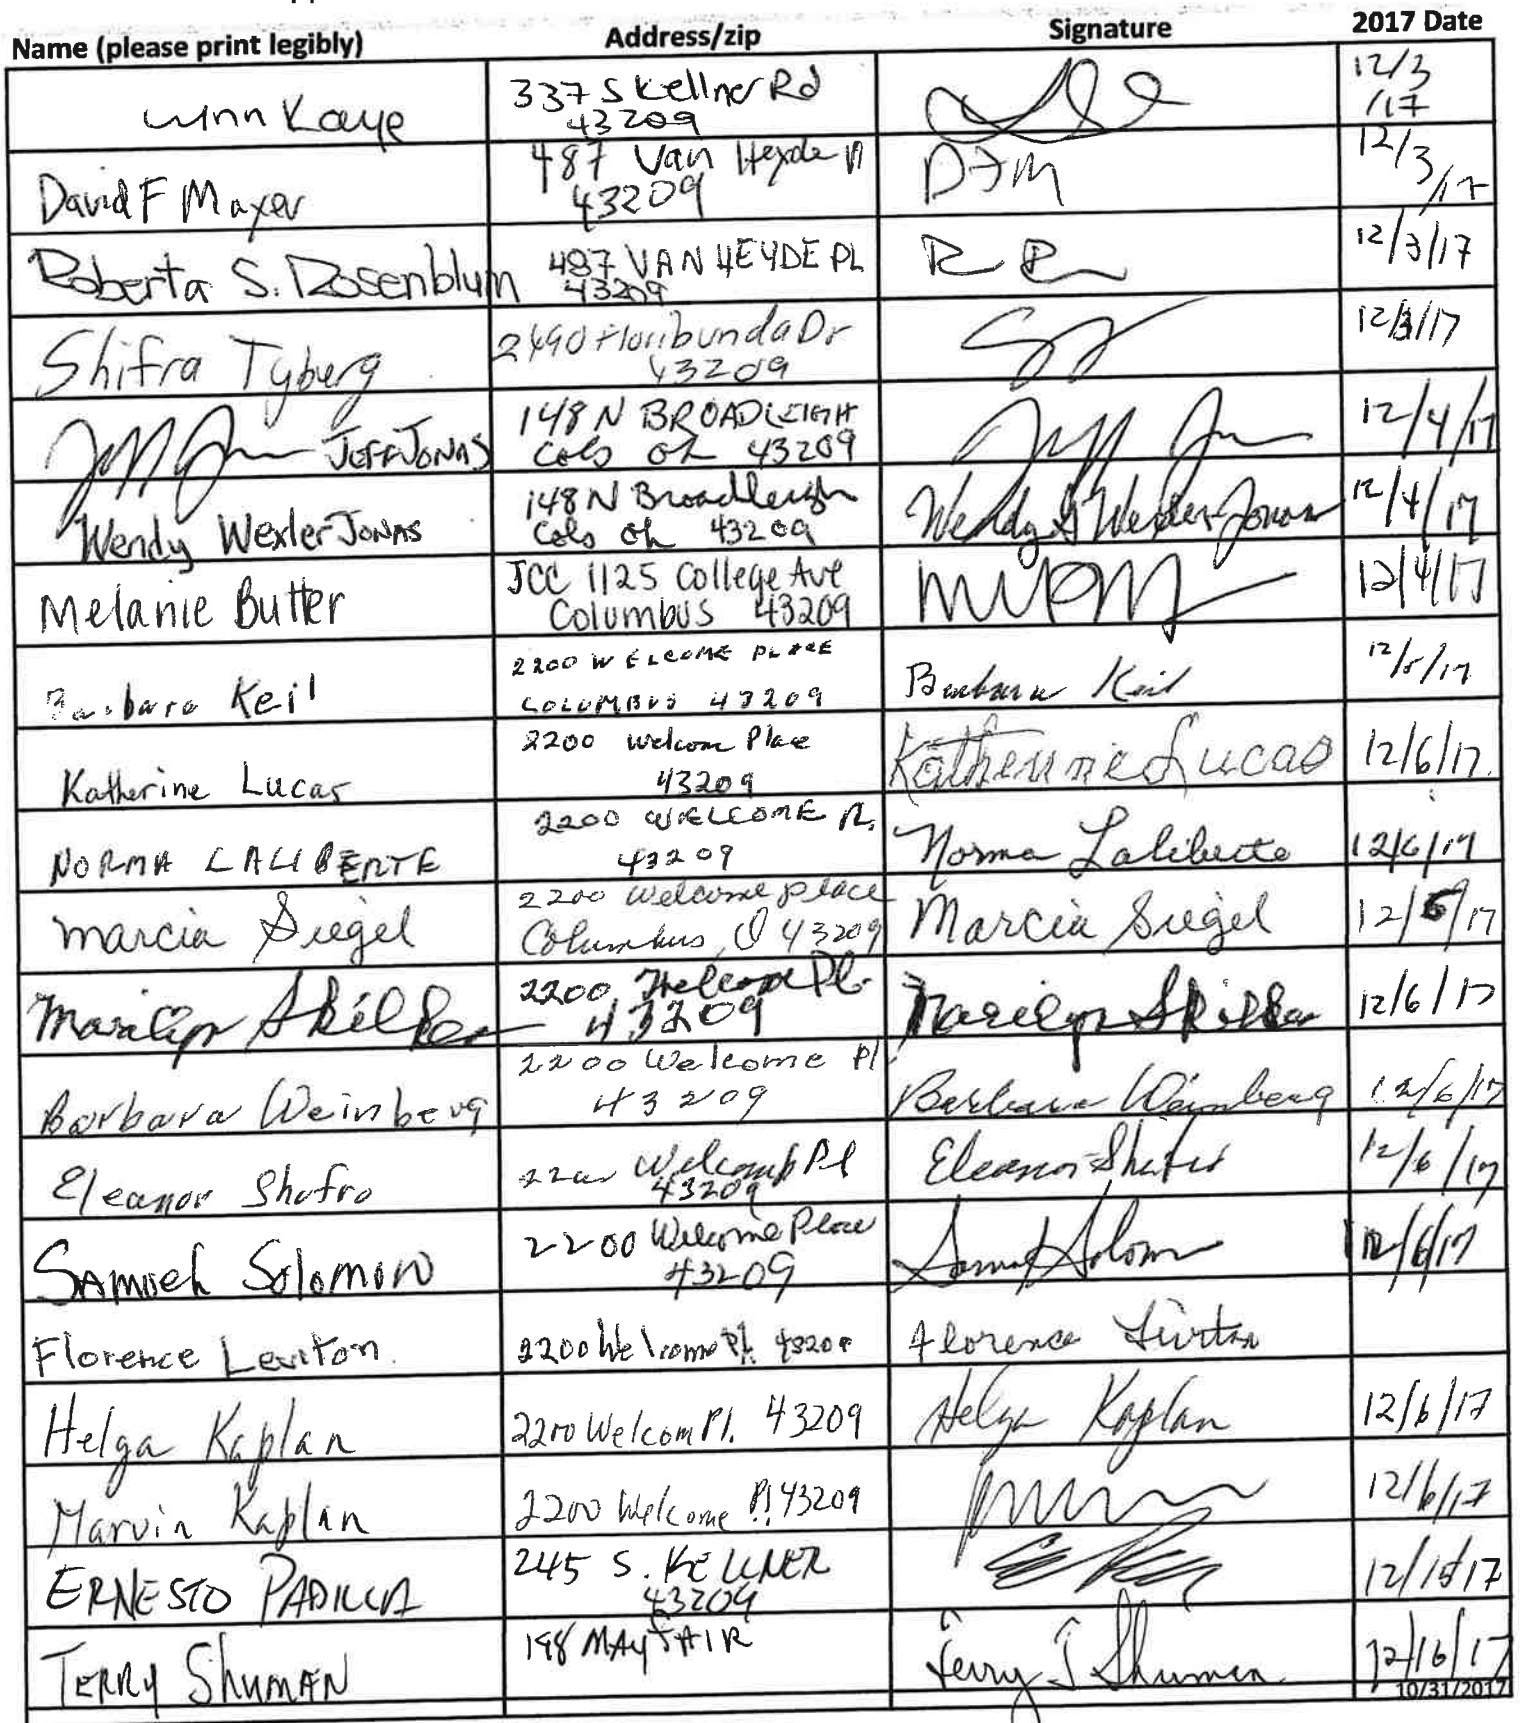 Name (please print legibly) Address/zip Signature 2017 Date
Lynn Kaye 337 S Kellner Rd 43209 12/3/17
David F Mayer 487 Van Heyde Pl 43209 DFM 12/3/17
Roberta S. Rosenblum 487 VAN HEYDE PL 43209 R R 12/3/17
Shifra Tyberg 2490 Floribunda Dr 43209 12/3/17
JEFF JONAS 148 N BROADLEIGH Cols oh 43209 12/4/17
Wendy Wexler-JONAS 148 N Broadleigh Cols oh 43209 Wendy S Wexler-Jonas 12/4/17
Melanie Butter JCC 1125 College Ave Columbus 43209 12/4/17
Barbara Keil 2200 WELCOME PLACE COLUMBUS 43209 Barbara Keil 12/5/17
Katherine Lucas 2200 Welcom Place 43209 Katherine Lucas 12/6/17
NORMA LALIBERTE 2200 WELCOME PL. 43209 Norma Laliberte 12/6/17
Marcia Siegel 2200 Welcome place Columbus, O 43209 Marcia Siegel 12/6/17
Marilyn Skilken 2200 Welcome Pl. 43209 Marilyn Skilken 12/6/17
Barbara Weinberg 2200 Welcome Pl 43209 Barbara Weinberg 12/6/17
Eleanor Shafro 2200 Welcome Pl 43209 Eleanor Shafro 12/6/17
SAMUEL SOLOMON 2200 Welcome Place 43209 Samuel Solomon 12/6/17
Florence Leviton. 2200 Welcome Pl. 43209 Florence Leviton
Helga Kaplan 2200 Welcom Pl. 43209 Helga Kaplan 12/6/17
Marvin Kaplan 2200 Welcome Pl 43209 12/6/17
ERNESTO PADILLA 245 S. KELLNER 43209 12/15/17
TERRY SHUMAN 198 MAYFAIR Terry J Shuman 12/16/17
10/31/2017